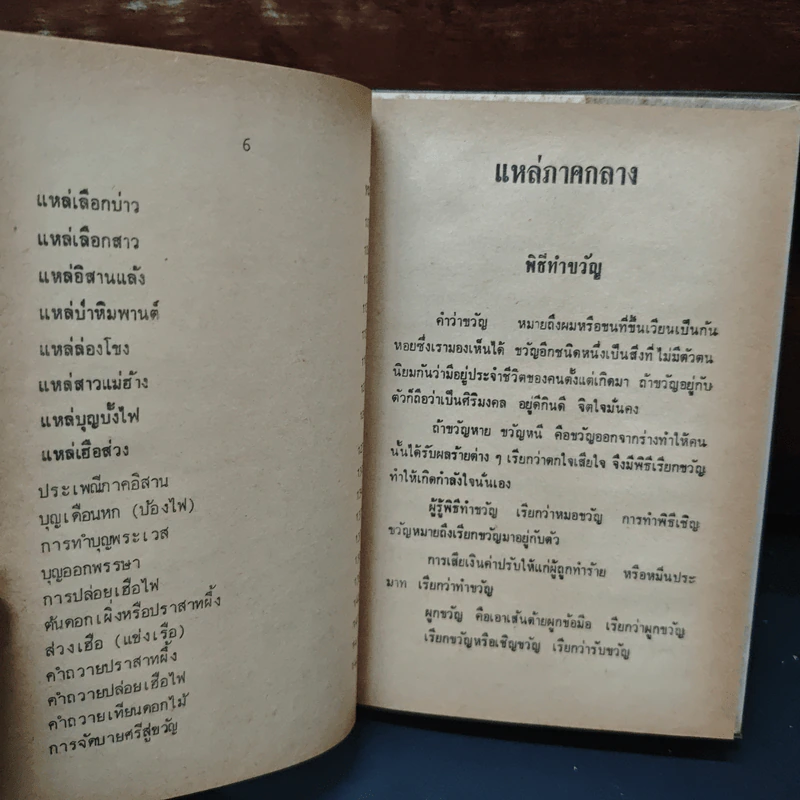 6
แหล่เลือกบ่าว
แหล่เลือกสาว
แหล่อิสานแล้ง
แหล่ป่าหิมพานต์
แหล่ล่องโขง
แหล่สาวแม่ฮ้าง
แหล่บุญบั้งไฟ
แหล่เฮือส่วง
ประเพณีภาคอิสาน
บุญเดือนหก (บ้องไฟ)
การทำบุญพระเวส
บุญออกพรรษา
การปล่อยเฮือไฟ
ต้นดอกเผิ่งหรือปราสาทผึ้ง
ส่วงเฮือ (แข่งเรือ)
คำถวายปราสาทผึ้ง
คำถวายปล่อยเฮือไฟ
คำถวายเทียนดอกไม้
การจัดบายศรีสู่ขวัญ
แหล่ภาคกลาง
พิธีทำขวัญ
คำว่าขวัญ หมายถึงผมหรือขนที่ขึ้นเวียนเป็นก้น
หอยซึ่งเรามองเห็นได้ ขวัญอีกชนิดหนึ่งเป็นสิ่งที่ไม่มีตัวตน
นิยมกันว่ามีอยู่ประจำชีวิตของคนตั้งแต่เกิดมา ถ้าขวัญอยู่กับ
ตัวก็ถือว่าเป็นศิริมงคล อยู่ดีกินดี จิตใจมั่นคง
ถ้าขวัญหาย ขวัญหนี คือขวัญออกจากร่างทำให้คน
นั้นได้รับผลร้ายต่าง ๆ เรียกว่าตกใจเสียใจ จึงมีพิธีเรียกขวัญ
ทำให้เกิดกำลังใจนั่นเอง
ผู้รู้พิธีทำขวัญ เรียกว่าหมอขวัญ การทำพิธีเชิญ
ขวัญหมายถึงเรียกขวัญมาอยู่กับตัว
การเสียเงินค่าปรับให้แก่ผู้ถูกทำร้าย หรือหมิ่นประ
มาท เรียกว่าทำขวัญ
ผูกขวัญ คือเอาเส้นด้ายผูกข้อมือ เรียกว่าผูกขวัญ
เรียกขวัญหรือเชิญขวัญ เรียกว่ารับขวัญ